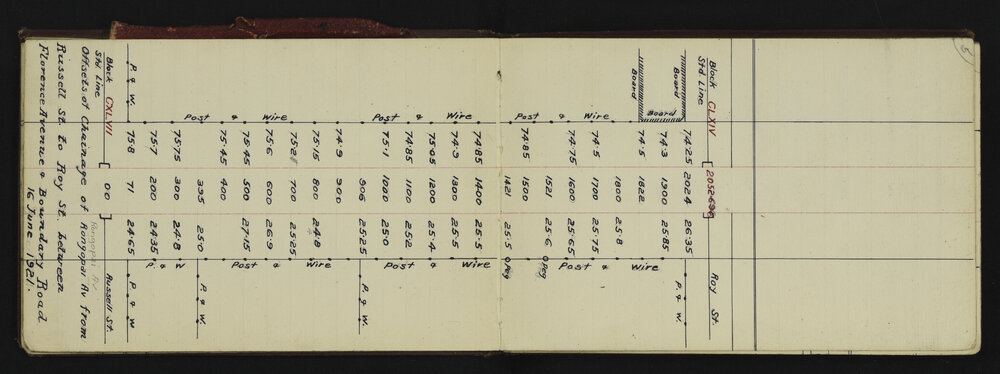 5
Block CLXIV [ ] Roy St.
Std Line
Board 74.25 2024 26.35 P. & W.
Board 74.3 1900 25.85
Board 74.5 1822
1800 25.8
Post & Wire 74.5 1700 25.75 Post & Wire
74.75 1600 25.65
1521 25.6 0 Peg
74.85 1500
1421 25.5 0 Peg
74.85 1400 25.5
74.3 1300 25.5
Post & Wire 75.05 1200 25.4 Post & Wire
74.85 1100 25.2
75.1 1000 25.0
906 25.25 P. & W.
74.9 900
75.15 800 24.8
75.2 700 25.25
Post & Wire 75.6 600 26.9 Post & Wire
75.45 500 27.15
75.45 400
335 25.0 P. & W.
75.75 300 24.8
75.7 200 24.35 P. & W
P. & W. 75.8 71 24.65 P. & W
Block CXLVII [ 00 ] Russell St.
Std. Line
Rongopai Av
Offsets of Chainage of Rongopai Av from
Russell St. to Roy St. between
Florence Avenue & Boundary Road
16 June 1921.